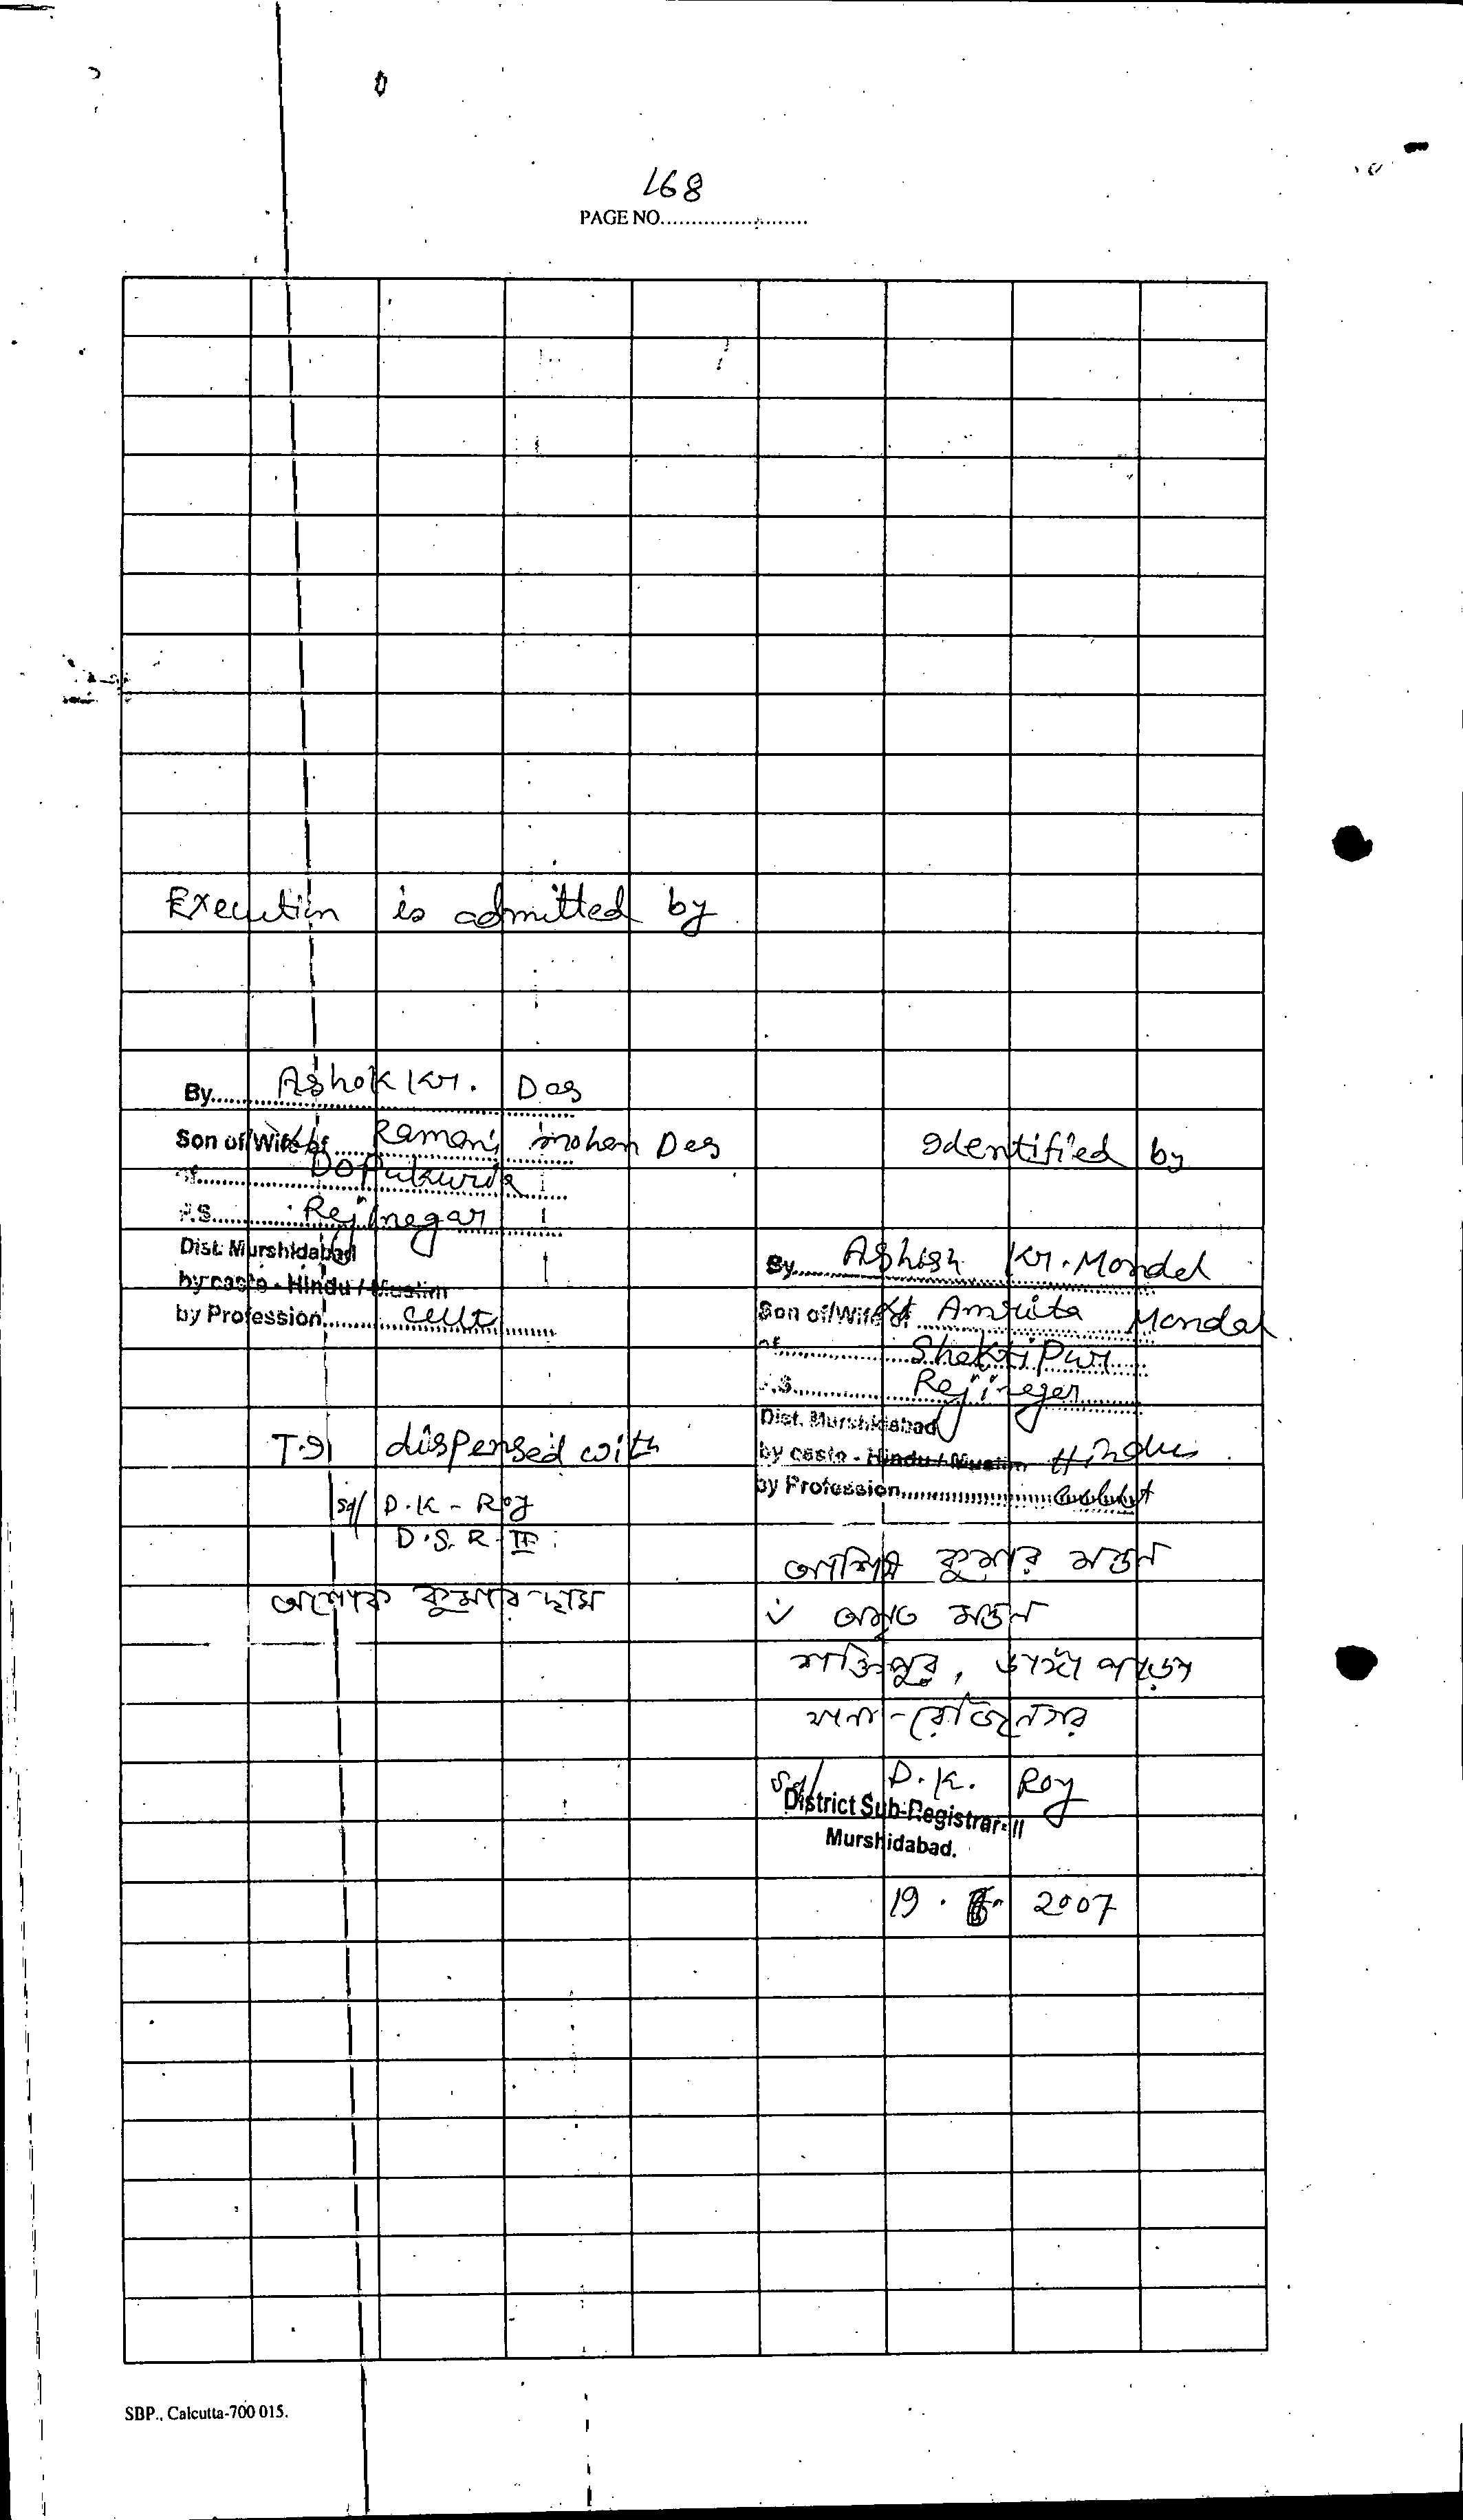 168
PAGE NO........................
Execution is admitted by
By........ Ashok Kr. Das
Son of/Wife of Ramani mohan Das
of........ Dopukuria
P.S........ Rejinagar
Dist. Murshidabad
by caste - Hindu / Muslim
by Profession........ Cult
T.I dispensed with
Sd/ D.K - Roy
D.S.R - II
অশোক কুমার দাস
Identified by
By........ Ashish Kr. Mondal
Son of/Wife of Lt Amrita Mondal
of........ Shaktipur
P.S........ Rejinagar
Dist. Murshidabad
by caste - Hindu / Muslim Hindu
by Profession........
আশিষ কুমার মন্ডল
অমৃত মন্ডল
শক্তিপুর, পাড়া
থানা - রেজিনগর
Sd/ D.K. Roy
District Sub-Registrar-II
Murshidabad.
19. 2007
SBP., Calcutta-700 015.